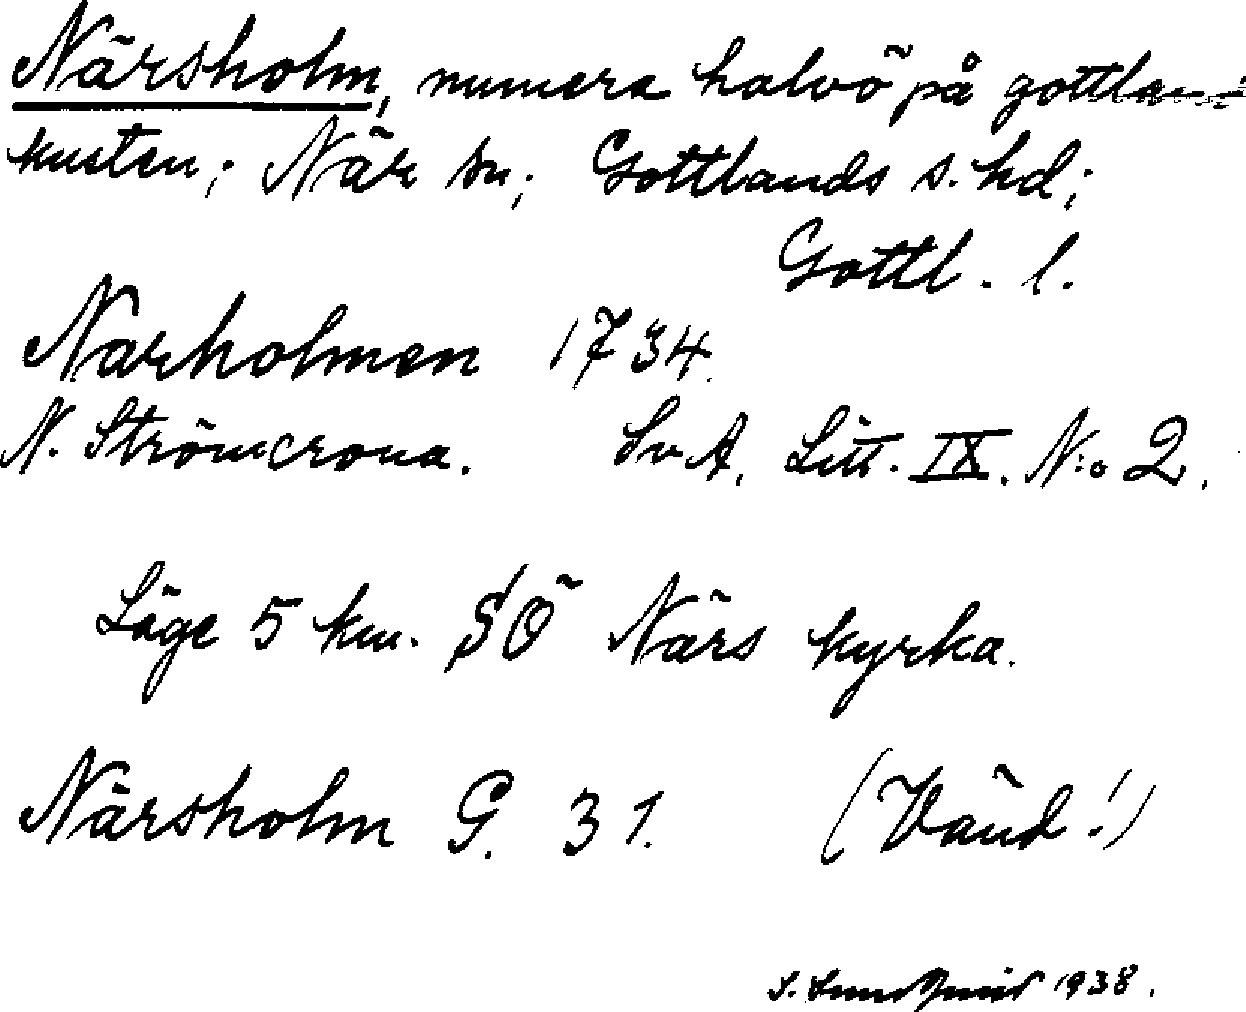 Närsholm, numera halvö på gottlands
kusten; När sn; Gottlands s. hd;
Gottl. l.
Narholmen 1734.
N. Strömcrona. Sv.A. Litt. IX. N:o 2.
Läge 5 km. SÖ Närs kyrka.
Närsholm G. 31. (Vänd!)
S. Sundquist 1938.